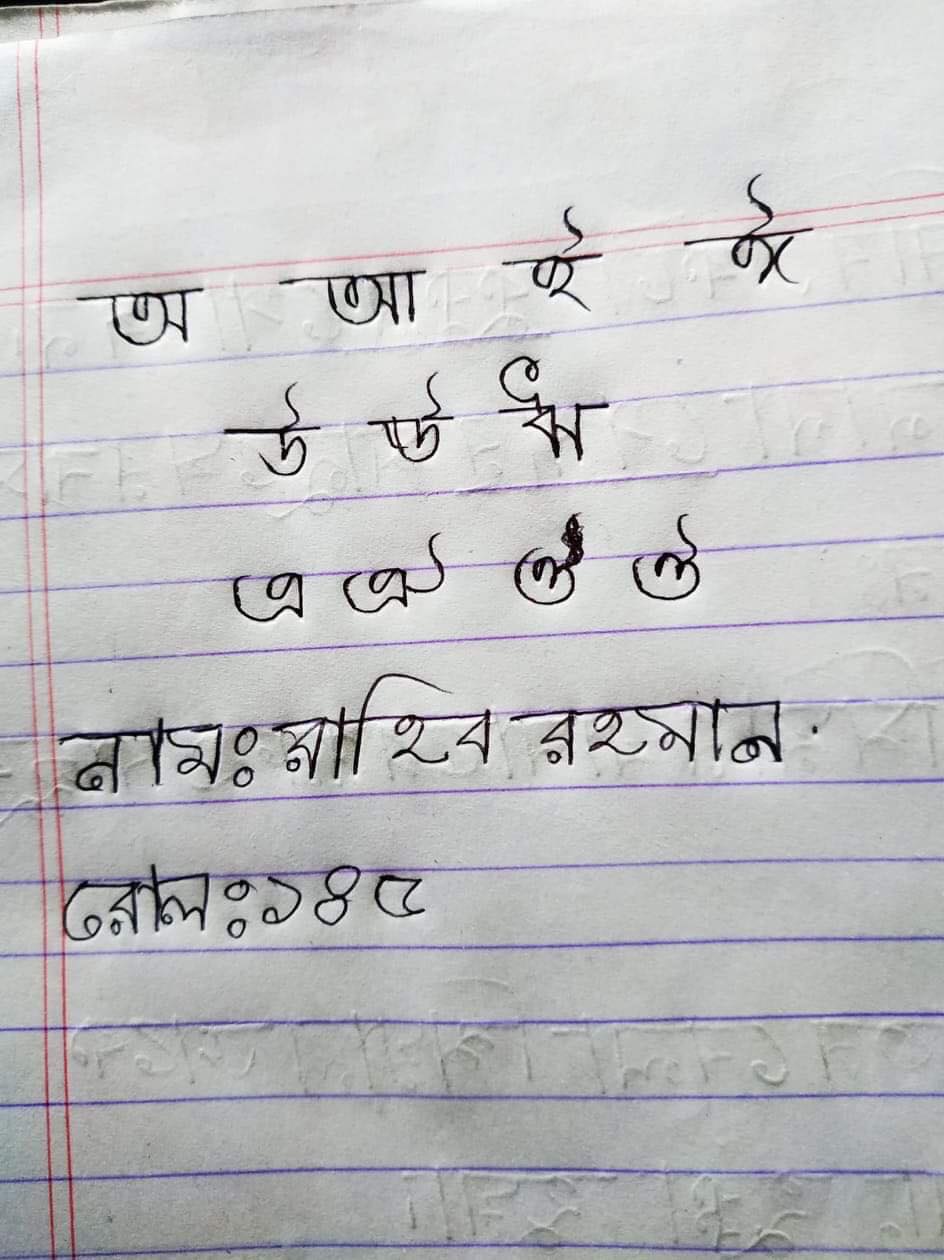 অ আ ই ঈ
উ ঊ ঋ
এ ঐ ও ঔ
নামঃ রাহিব রহমান.
রোলঃ ১৪৫